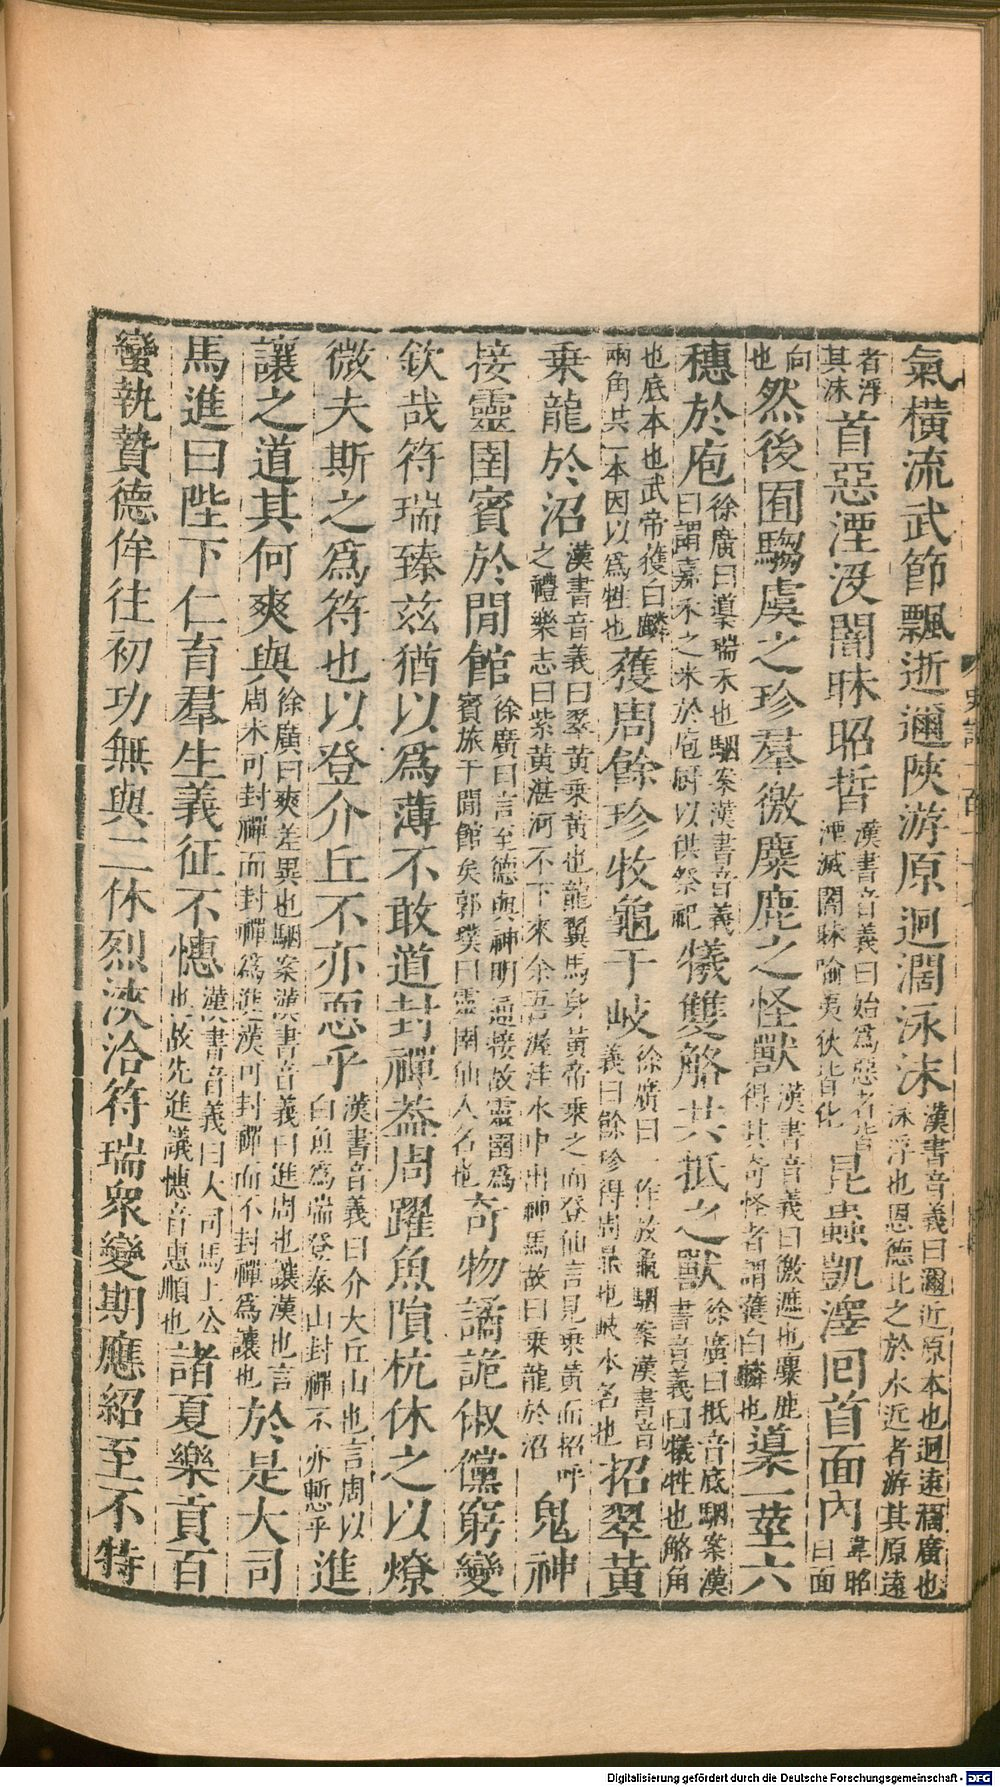 氣橫流武節飄逝邇陝游原迥濶泳沫漢書音義曰邇近原本也迥遠濶廣也泳浮也恩德比之於水近者游其原遠
者浮其沫首惡湮沒闇昧昭晢漢書音義曰始爲惡者皆湮滅闇昧喻夷狄皆化昆蟲凱澤回首面內韋昭曰面
向也然後囿騶虞之珍羣徼麋鹿之怪獸漢書音義曰徼遮也麋鹿得其奇怪者謂獲白麟也䆃一莖六
穗於庖徐廣曰䆃瑞禾也駰案漢書音義曰謂嘉禾之米於庖厨以供祭祀犧雙觡共抵之獸徐廣曰抵音底駰案漢書音義曰犧牲也觡角
也底本也武帝獲白麟兩角共一本因以爲牲也獲周餘珍牧龜于岐徐廣曰一作放龜駰案漢書音義曰餘珍得周鼎也岐水名也招翠黃
乘龍於沼漢書音義曰翠黃乘黃也龍翼馬身黃帝乘之而登仙言見乘黃而招呼之禮樂志曰紫黃湛河不下來余吾渥洼水中出神馬故曰乘龍於沼鬼神
接靈圉賓於閒館徐廣曰言至德與神明通接故靈圉爲賓旅于閒館矣郭璞曰靈圉仙人名也奇物譎詭俶儻窮變
欽哉符瑞臻兹猶以爲薄不敢道封禪葢周躍魚隕杭休之以燎
微夫斯之爲符也以登介丘不亦恧乎漢書音義曰介大丘山也言周以白魚爲瑞登泰山封禪不亦慙乎進
讓之道其何爽與徐廣曰爽差異也駰案漢書音義曰進周也讓漢也言周未可封禪而封禪爲進漢可封禪而不封禪爲讓也於是大司
馬進曰陛下仁育羣生義征不憓漢書音義曰大司馬上公也故先進議憓音惠順也諸夏樂貢百
蠻執贄德侔往初功無與二休烈浹洽符瑞衆變期應紹至不特
Digitalisierung gefördert durch die Deutsche Forschungsgemeinschaft - DFG